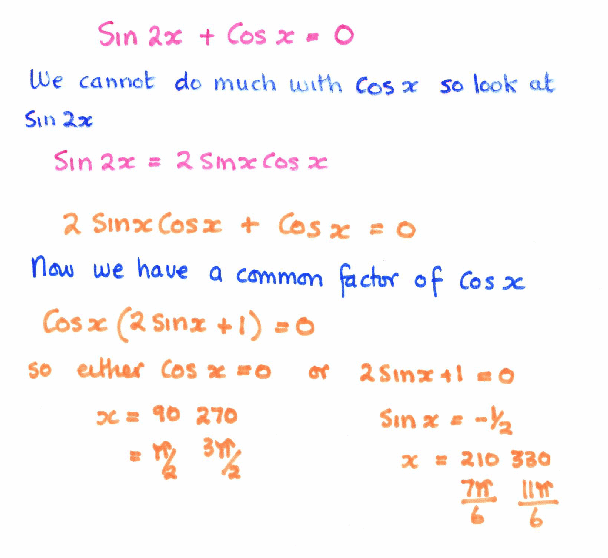 Sin 2x + Cos x = 0
We cannot do much with Cos x so look at
Sin 2x
Sin 2x = 2 Sinx Cos x
2 Sinx Cos x + Cos x = 0
Now we have a common factor of Cos x
Cos x (2 Sinx + 1) = 0
so either Cos x = 0 or 2 Sinx + 1 = 0
x = 90 270 Sin x = -1/2
= π/2 3π/2 x = 210 330
7π/6 11π/6